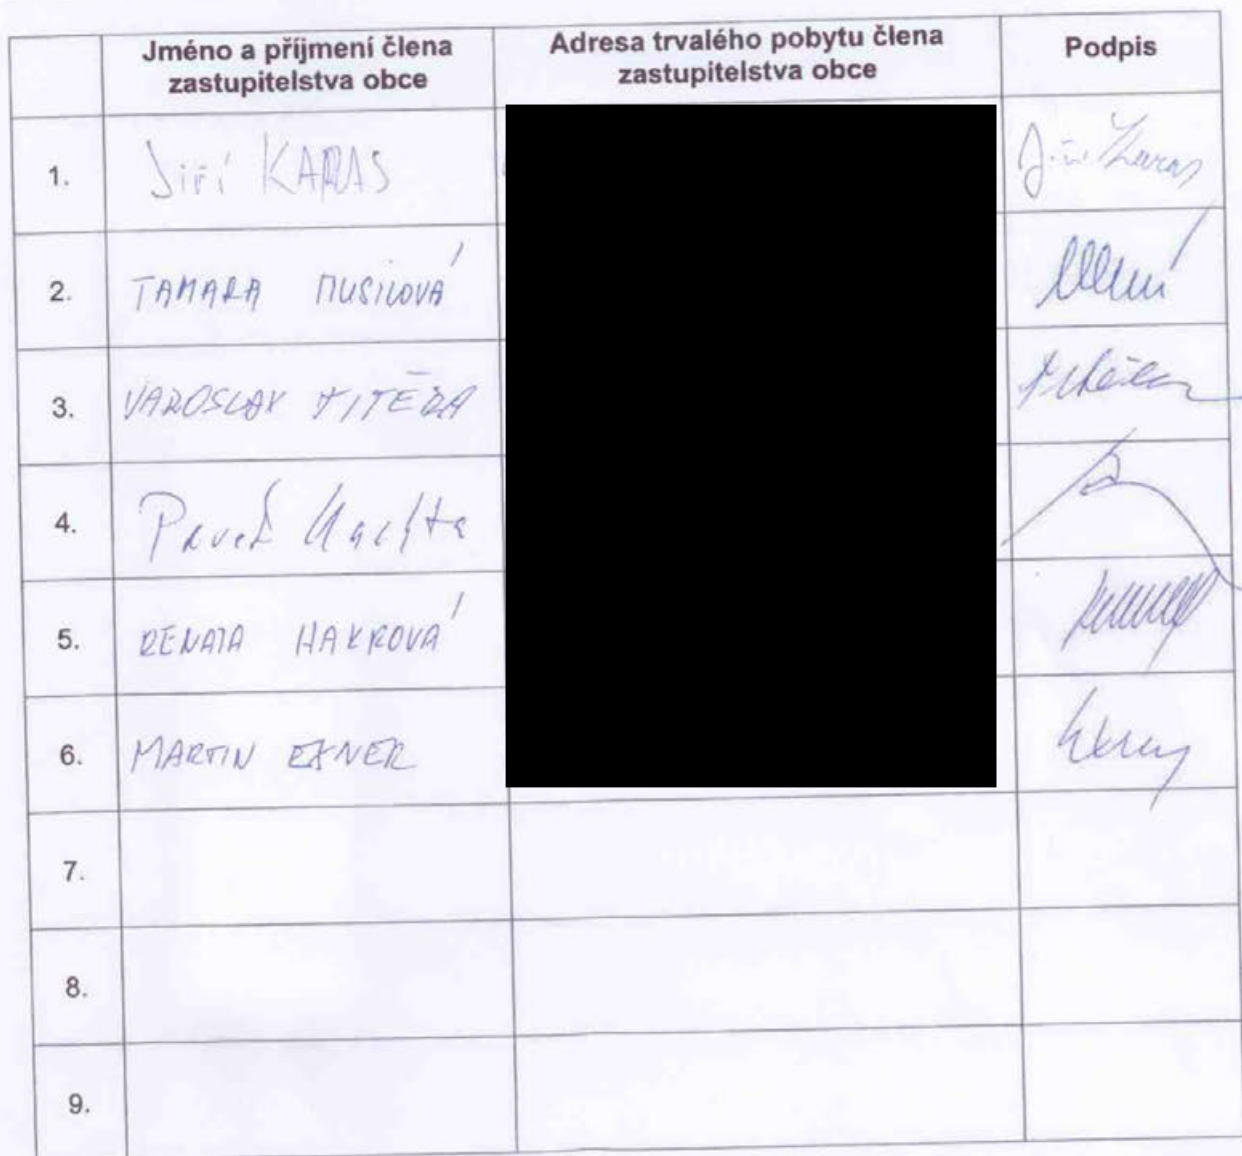 Jméno a příjmení člena
zastupitelstva obce
Adresa trvalého pobytu člena
zastupitelstva obce
Podpis
1. Jiří KARAS Jiří Karas
2. TAMARA MUSILOVÁ
3. JAROSLAV
4. Pavel
5. RENATA HAKROVÁ
6. MARTIN EXNER
7.
8.
9.